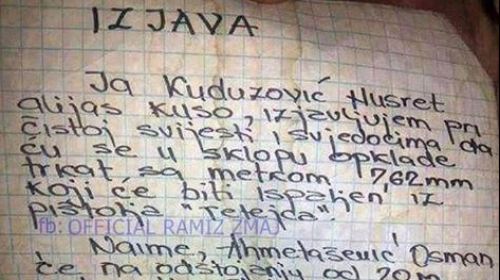 IZJAVA
Ja Kuduzović Husret
alijas Kuso, izjavljujem pri
čistoj svijesti i svjedocima da
ću se u sklopu opklade
trkat sa metkom 7,62mm
koji će biti ispaljen iz
pištolja "Tetejca"
fb: OFFICIAL RAMIZ ZMAJ
Naime, Ahmetašević Osman
će na odstojanju od 20m